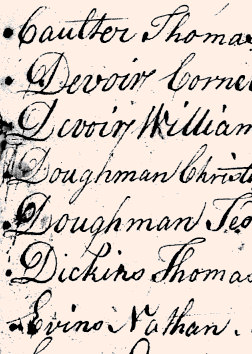 Caulter Thomas
Devoir Corne
Devoir William
Doughman Christ
Doughman Geo
Dickins Thomas
Evins Nathan